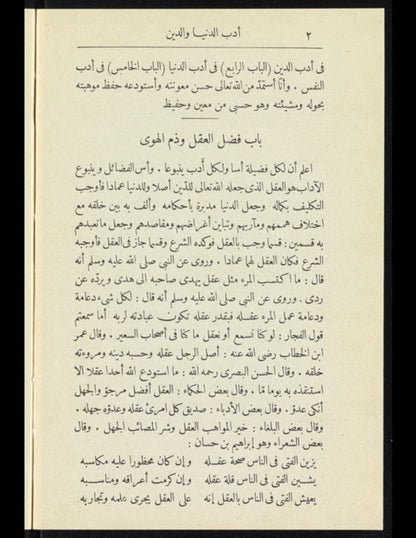 ٢ أدب الدنيا والدين
فى أدب الدين (الباب الرابع) فى أدب الدنيا (الباب الخامس) فى أدب
النفس . وأنا أستمدّ من الله تعالى حسن معونته وأستودعه حفظ موهبته
بحوله ومشيئته وهو حسبى من معين وحفيظ
باب فضل العقل وذم الهوى
اعلم أن لكل فضيلة أسا ولكل أدب ينبوعا . وأس الفضائل وينبوع
الآداب هو العقل الذى جعله الله تعالى للدّين أصلا وللدنيا عمادا فأوجب
التكليف بكماله وجعل الدنيا مدبرة بأحكامه وألف به بين خلقه مع
اختلاف هممهم ومآربهم وتباين أغراضهم ومقاصدهم وجعل ما تعبدهم
به قسمين : قسما وجب بالعقل فوكده الشرع وقسما جاز فى العقل فأوجبه
الشرع فكان العقل لهما عمادا . وروى عن النبى صلى الله عليه وسلم أنه
قال : ما اكتسب المرء مثل عقل يهدى صاحبه الى هدى ويردّه عن
ردى . وروى عن النبى صلى الله عليه وسلم أنه قال : لكل شىء دعامة
ودعامة عمل المرء عقله فبقدر عقله تكون عبادته لربه أما سمعتم
قول الفجار : لو كنا نسمع أو نعقل ما كنا فى أصحاب السعير . وقال عمر
ابن الخطاب رضى الله عنه : أصل الرجل عقله وحسبه دينه ومروءته
خلقه . وقال الحسن البصرى رحمه الله : ما استودع الله أحدا عقلا الا
استنقذه به يوما مّا . وقال بعض الحكماء : العقل أفضل مرجوّ والجهل
أنكى عدوّ . وقال بعض الأدباء : صديق كل امرئ عقله وعدوّه جهله .
وقال بعض البلغاء : خير المواهب العقل وشر المصائب الجهل . وقال
بعض الشعراء وهو إبراهيم بن حسان :
يزين الفتى فى الناس صحة عقله وإن كان محظورا عليه مكاسبه
يشين الفتى فى الناس قلة عقله وإن كرمت أعراقه ومناسبه
يعيش الفتى فى الناس بالعقل إنه على العقل يجرى علمه وتجاربه